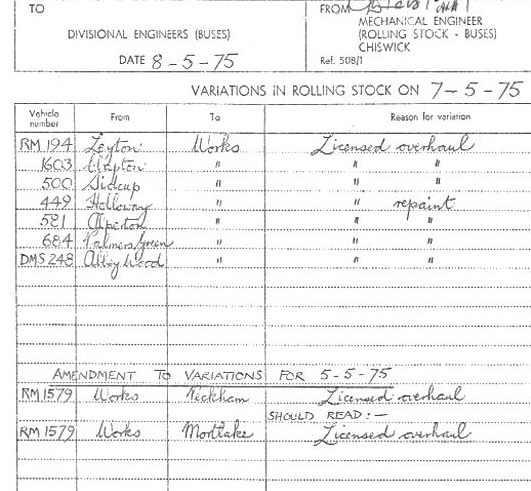 TO
FROM
MECHANICAL ENGINEER
DIVISIONAL ENGINEERS (BUSES) (ROLLING STOCK - BUSES)
CHISWICK
DATE 8-5-75 Ref. 508/1
VARIATIONS IN ROLLING STOCK ON 7-5-75
Vehicle number From To Reason for variation
RM 194 Leyton Works Licensed overhaul
1603 Clapton " " "
500 Sidcup " " "
449 Holloway " " repaint
521 Alperton " " "
684 Palmers Green " " "
DMS 248 Abbey Wood " " "
AMENDMENT TO VARIATIONS FOR 5-5-75
RM 1579 Works Peckham Licensed overhaul
SHOULD READ :—
RM 1579 Works Mortlake Licensed overhaul